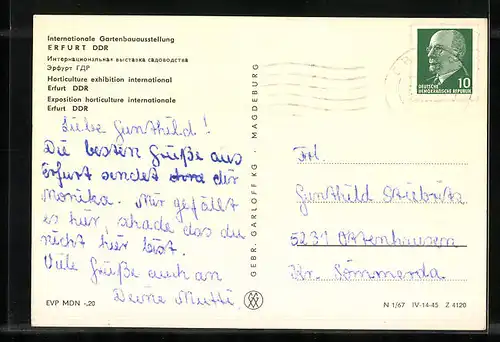 Internationale Gartenbauausstellung
ERFURT DDR
Интернациональная выставка садоводства
Эрфурт ГДР
Horticulture exhibition international
Erfurt DDR
Exposition horticulture internationale
Erfurt DDR
Liebe Gunthild!
Die besten Grüße aus
Erfurt sendet dir
Monika. Mir gefällt
es hier, schade das du
nicht hier bist.
Viele Grüße auch an
Deine Mutti
EVP MDN -,20
GEBR. GARLOFF KG · MAGDEBURG
DEUTSCHE
DEMOKRATISCHE REPUBLIK
10
Frl.
Gunthild
5231
Kr. Sömmerda
N 1/67 IV-14-45 Z 4120